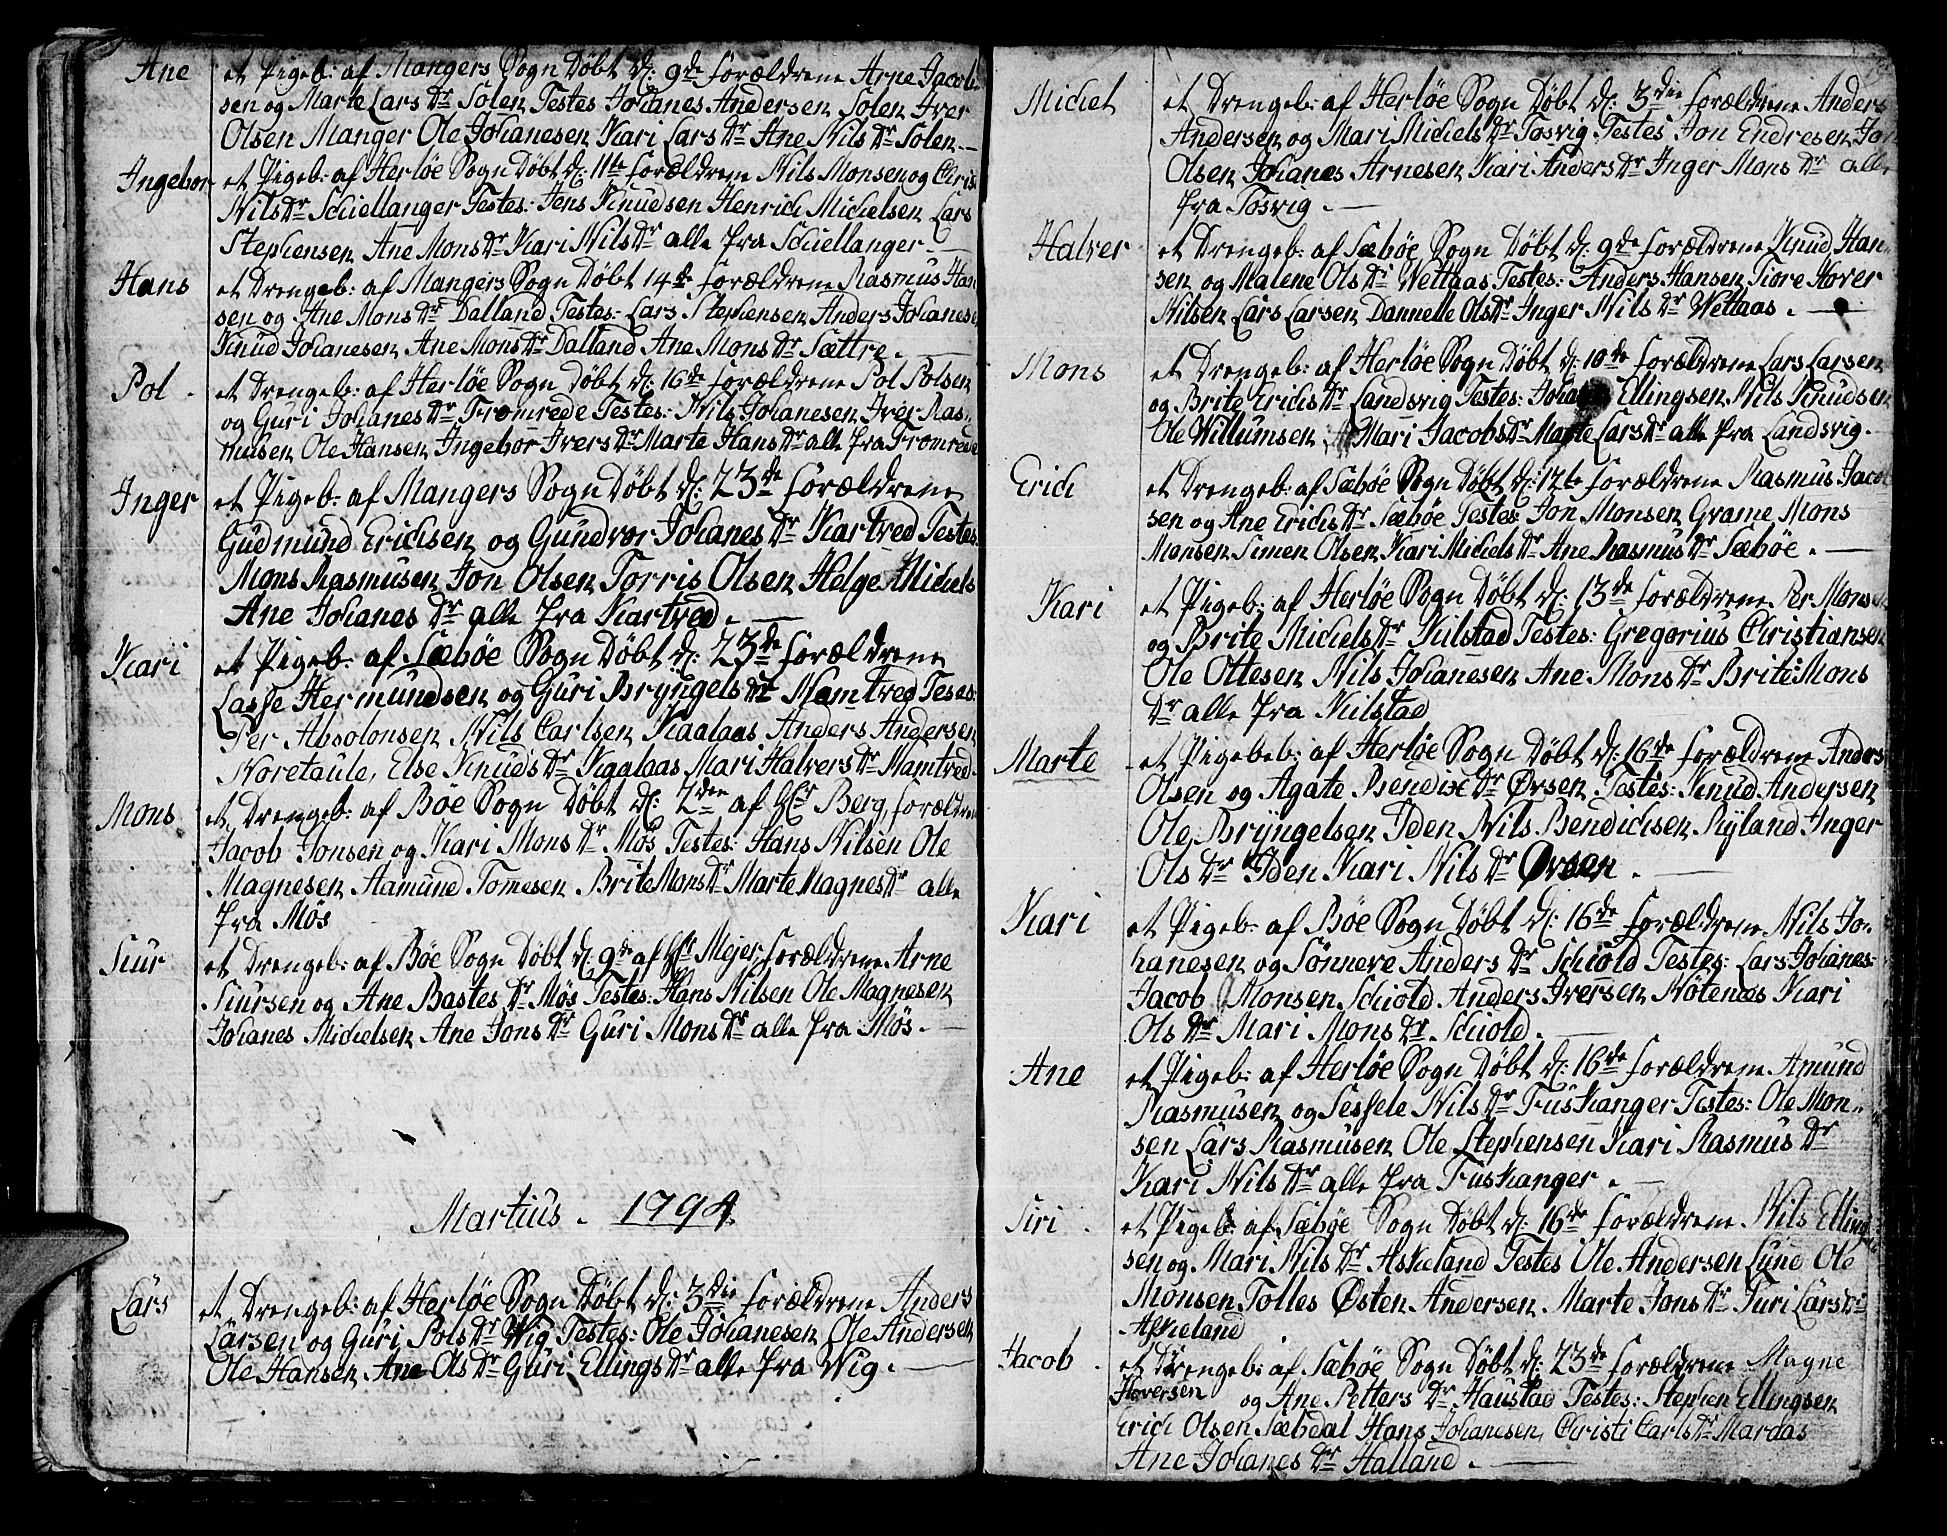 Ane et Pigeb: af Mangers Sogn Døbt d: 9de forældrene Arne Jacob-
sen og Marte Lars Dr Solen Testes Johanes Andersen Solen Iver
Olsen Manger Ole Johanesen Kari Lars Dr Ane Nils Dr Solen.
Ingebor et Pigeb: af Herløe Sogn Døbt d: 11te forældrene Nils Monsen og Chris
Nils Dr Schiellanger Testes: Jens Knudsen Henrich Michelsen Lars
Stephensen Ane Mons Dr Kari Nils Dr alle fra Schiellanger.
Hans et Drengeb: af Mangers Sogn Døbt 14de forældrene Rasmus Han
sen og Ane Mons Dr Dalland Testes: Lars Stephensen Anders Johanese
Knud Johanesen Ane Mons Dr Dalland Ane Mons Dr Sættre.
Pol. et Drengeb: af Herløe Sogn Døbt d: 16de forældrene Pol Polsen
og Guri Johanes Dr Fromrede Testes: Nils Johanesen Iver Ras-
musen Ole Hansen Ingebor Ivers Dr Marte Hans Dr alle fra Fromrede
Inger et Pigeb: af Mangers Sogn Døbt d: 23de forældrene
Gudmund Erichsen og Gundvor Johanes Dr Kartved Testes
Mons Rasmusen Jon Olsen Torris Olsen Helge Michels
Ane Johanes Dr alle fra Kartved.
Kari et Pigeb: af Sæbøe Sogn Døbt d: 23de forældrene
Lasse Hermundsen og Guri Bryngels Dr Namtved Teses:
Per Absolonsen Nils Carlsen Kaalaas Anders Andersen
Noretaule, Else Knuds Dr Kaalaas Mari Halvers Dr Namtved.
Mons et Drengeb: af Bøe Sogn Døbt d: 2den af Hr Berg, forældrene
Jacob Jonsen og Kari Mons Dr Møs Testes: Hans Nilsen Ole
Magnesen Aamund Tomesen Brite Mons Dr Marte Magnes Dr alle
fra Møs
Siur et Drengeb: af Bøe Sogn Døbt d: 9de af Hr Mejer, forældrene Arne
Siursen og Ane Bastes Dr Møs Testes: Hans Nilsen Ole Magnesen
Johanes Michelsen Ane Jons Dr Guri Mons Dr alle fra Møs.
Martius. 1794
Lars et Drengeb: af Herløe Sogn Døbt d: 3die forældrene Anders
Larsen og Guri Pols Dr Wig Testes: Ole Johanesen Ole Andersen
Ole Hansen Ane Ols Dr Guri Ellings Dr alle fra Wig.
Michel et Drengeb: af Herløe Sogn Døbt d: 3die forældrene Anders
Andersen og Mari Michels Dr Tosvig Testes Jon Endresen Jon
Olsen Johanes Arnesen Kari Anders Dr Inger Mons Dr alle
fra Tosvig.
Halver et Drengeb: af Sæbøe Sogn Døbt d: 9de forældrene Knud Han
sen og Malene Ols Dr Wettaas Testes: Anders Hansen Tore Hover
Nilsen Lars Larsen Dannelle Ols Dr Inger Nils Dr Wettaas.
Mons et Drengeb: af Herløe Sogn Døbt d: 10de forældrene Lars Larsen
og Brite Erichs Dr Landsvig Testes: Ellingsen Nils Knudsen
Ole Willumsen Mari Jacobs Dr Marte Lars Dr alle fra Landsvig.
Erich et Drengeb: af Sæbøe Sogn Døbt d: 12te forældrene Rasmus Jacob
sen og Ane Erichs Dr Sæbøe Testes: Jon Monsen Grame Mons
Monsen Simen Olsen Kari Michels Dr Ane Rasmus Dr Sæbøe.
Kari et Pigeb: af Herløe Sogn Døbt d: 13de forældrene Per Monsen
og Brite Michels Dr Kilstad Testes: Gregorius Christiansen
Ole Ottesen Nils Johanesen Ane Mons Dr Brite Mons
Dr alle fra Kilstad
Marte et Pigebeb: af Herløe Sogn Døbt d: 16de forældrene Anders
Olsen og Agate Bendix Dr Ørsen Testes: Knud Andersen
Ole Bryngelsen Iden Nils Bendichsen Ryland Inger
Ols Dr Iden Kari Nils Dr Ørsen.
Kari et Pigeb: af Bøe Sogn Døbt d: 16de forældrene Nils Jo-
hanesen og Sønneve Anders Dr Schiold Testes: Lars Johanes
Jacob Monsen Schiold Anders Iversen Nøtenes Kari
Ols Dr Mari Mons Dr Schiold.
Ane et Pigeb: af Herløe Sogn Døbt d: 16de forældrene Amund
Rasmusen og Sessele Nils Dr Fuskanger Testes: Ole Mon-
sen Lars Rasmusen Ole Stephensen Kari Rasmus Dr
Kari Nils Dr alle fra Fuskanger.
Siri. et Pigeb: af Sæbøe Sogn Døbt d: 16de forældrene Nils Elling
sen og Mari Nils Dr Askeland Testes Ole Andersen Lund Ole
Monsen Tolles Østen Andersen Marte Jons Dr Turi Lars Dr
Askeland
Jacob. et Drengeb: af Sæbøe Sogn Døbt d: 23de forældrene Magne
Hoversen og Ane Petters Dr Haustad Testes: Stephen Ellingsen
Erich Olsen Sæbdal Hans Johanesen, Christi Carls Dr Mardas
Ane Johanes Dr Halland.